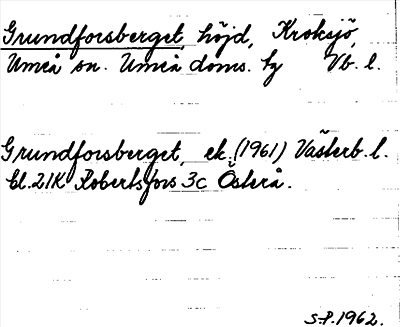 Grundforsberget, höjd, Kroksjö,
Umeå sn. Umeå doms. tg Vb. l.
Grundforsberget, ek. (1961) Västerb. l.
bl. 21K Robertsfors 3c Österå.
S-P. 1962.